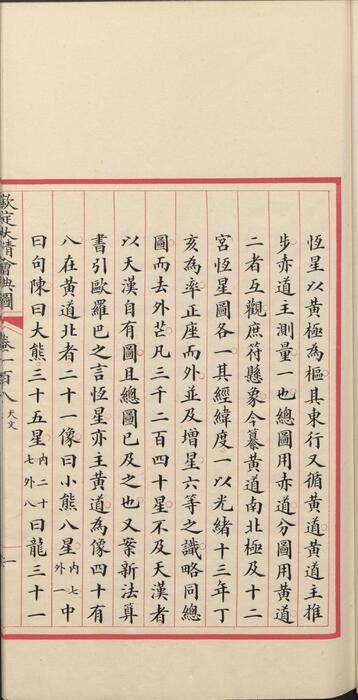 恆星以黃極為樞其東行又循黃道黃道主推
步赤道主測量一也總圖用赤道分圖用黃道
二者互觀庶符懸象今纂黃道南北極及十二
宮恆星圖各一其經緯度一以光緒十三年丁
亥為率正座而外並及增星六等之識略同總
圖而去外芒凡三千二百四十星不及天漢者
以天漢自有圖且總圖已及之也又案新法算
書引歐羅巴之言恆星亦主黃道為像四十有
八在黃道北者二十一像曰小熊八星內七外一中
曰句陳曰大熊三十五星內二十七外八曰龍三十一
欽定大清會典圖 卷一百八 天文 一